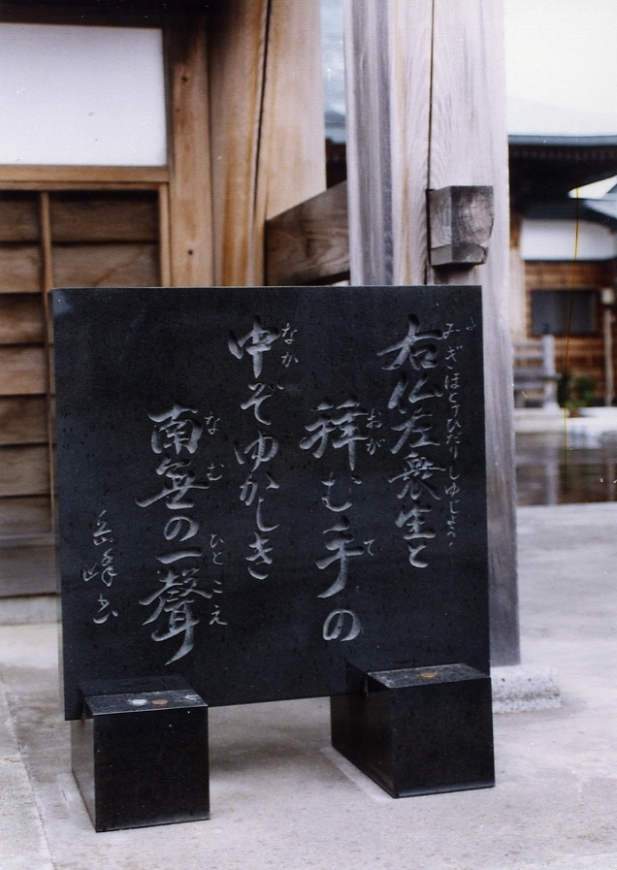 右仏左衆生と
みぎほとけひだりしゆじよう
拝む手の
おが
て
中ぞゆかしき
なか
南無の一聲
なむ
ひとこえ
岳峰書